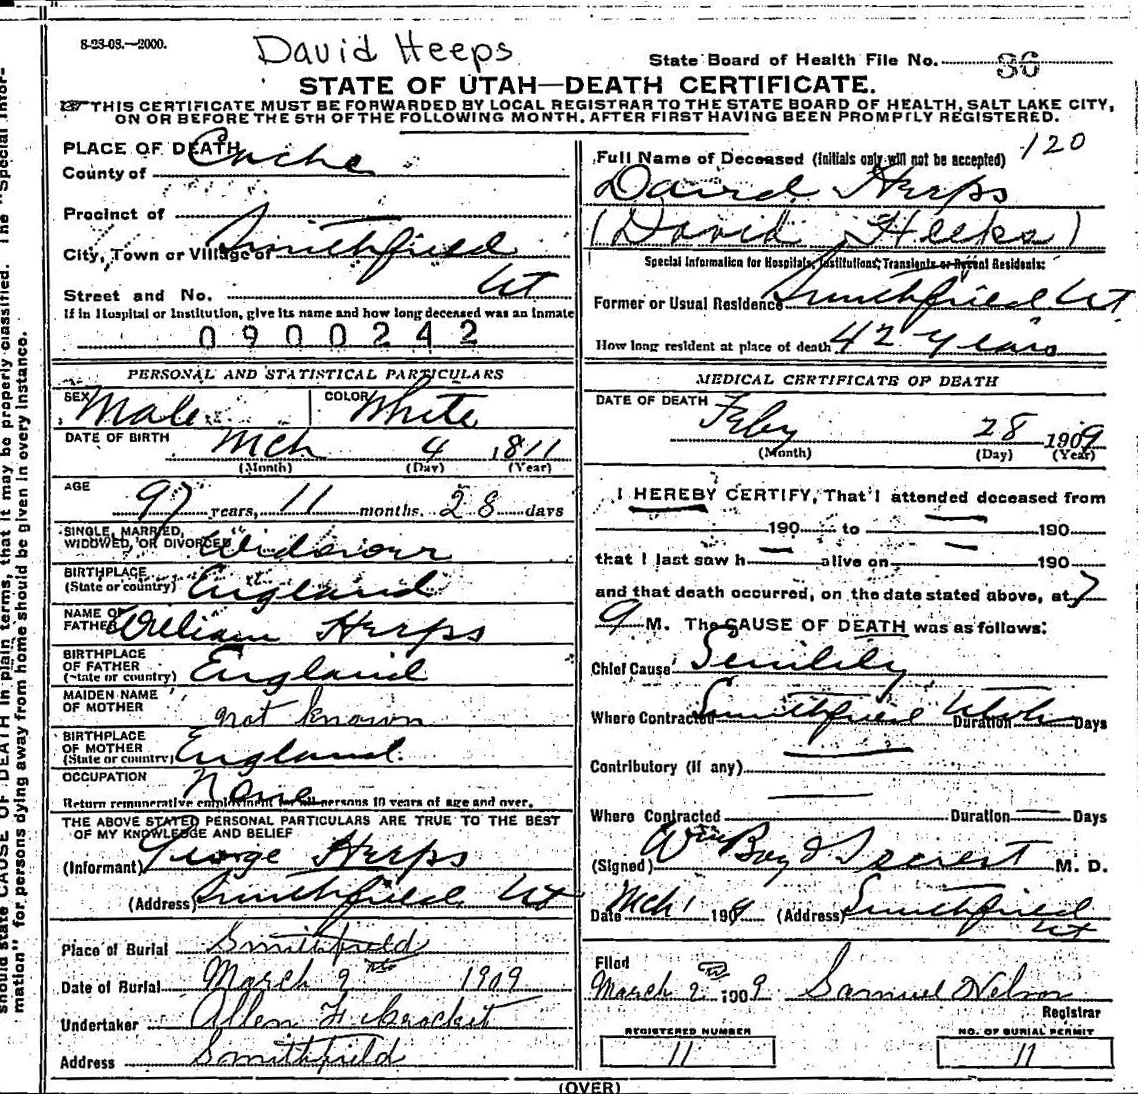 8-23-08.—2000.
David Heeps
State Board of Health File No. 36
STATE OF UTAH—DEATH CERTIFICATE.
THIS CERTIFICATE MUST BE FORWARDED BY LOCAL REGISTRAR TO THE STATE BOARD OF HEALTH, SALT LAKE CITY,
ON OR BEFORE THE 5TH OF THE FOLLOWING MONTH, AFTER FIRST HAVING BEEN PROMPTLY REGISTERED.
PLACE OF DEATH
County of Cache
Precinct of
City, Town or Village of Smithfield
Street and No. Ut
If in Hospital or Institution, give its name and how long deceased was an inmate
0900242
PERSONAL AND STATISTICAL PARTICULARS
SEX Male COLOR White
DATE OF BIRTH Mch 4 1811
(Month) (Day) (Year)
AGE
97 years, 11 months. 28 days
SINGLE, MARRIED,
WIDOWED, OR DIVORCED Widower
BIRTHPLACE
(State or country) England
NAME OF
FATHER William Heeps
BIRTHPLACE
OF FATHER
(State or country) England
MAIDEN NAME
OF MOTHER not known
BIRTHPLACE
OF MOTHER
(State or country) England.
OCCUPATION None
Return remunerative employment for all persons 10 years of age and over.
THE ABOVE STATED PERSONAL PARTICULARS ARE TRUE TO THE BEST
OF MY KNOWLEDGE AND BELIEF
(Informant) George Heeps
(Address) Smithfield Ut
Place of Burial Smithfield
Date of Burial March 2nd 1909
Undertaker Allen
Address Smithfield
120
Full Name of Deceased (Initials only will not be accepted)
David Heeps
(David Heeks)
Special Information for Hospitals, Institutions, Transients or Recent Residents:
Former or Usual Residence Smithfield Ut
How long resident at place of death 42 years
MEDICAL CERTIFICATE OF DEATH
DATE OF DEATH
Feby 28 1909
(Month) (Day) (Year)
I HEREBY CERTIFY, That I attended deceased from
190 to 190
that I last saw h alive on 190
and that death occurred, on the date stated above, at 7
a M. The CAUSE OF DEATH was as follows:
Chief Cause Senility
Where Contracted Smithfield Utah Duration Days
Contributory (if any)
Where Contracted Duration Days
(Signed) Wm Boyd M. D.
Date Mch 1 1909 (Address) Smithfield
Ut
Filed
March 2nd 1909 Samuel Nelson
Registrar
REGISTERED NUMBER
11
NO. OF BURIAL PERMIT
11
(OVER)
should state CAUSE OF DEATH in plain terms, that it may be properly classified. The "Special Infor-
mation" for persons dying away from home should be given in every instance.